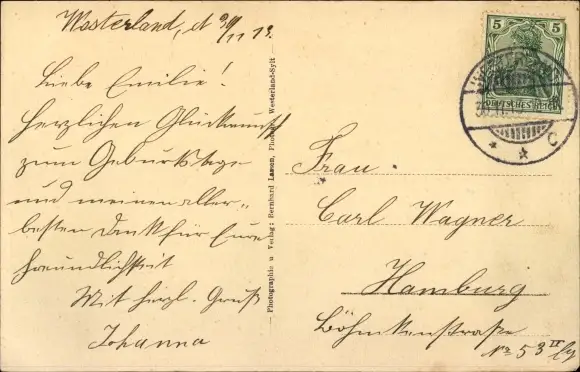 Westerland, d 30/11 13.
Liebe Emilie!
Herzlichen Glückwunsch
zum Geburtstage
und meinen aller-
besten Dank für Eure
Freundlichkeit
Mit herzl. Gruß
Johanna
Photographie u Verlag: Bernhard Lassen, Photogr. Westerland-Sylt
5 5
DEUTSCHES REICH
* * C
Frau
Carl Wagner
Hamburg
Böhmkenstraße
No 53 IV